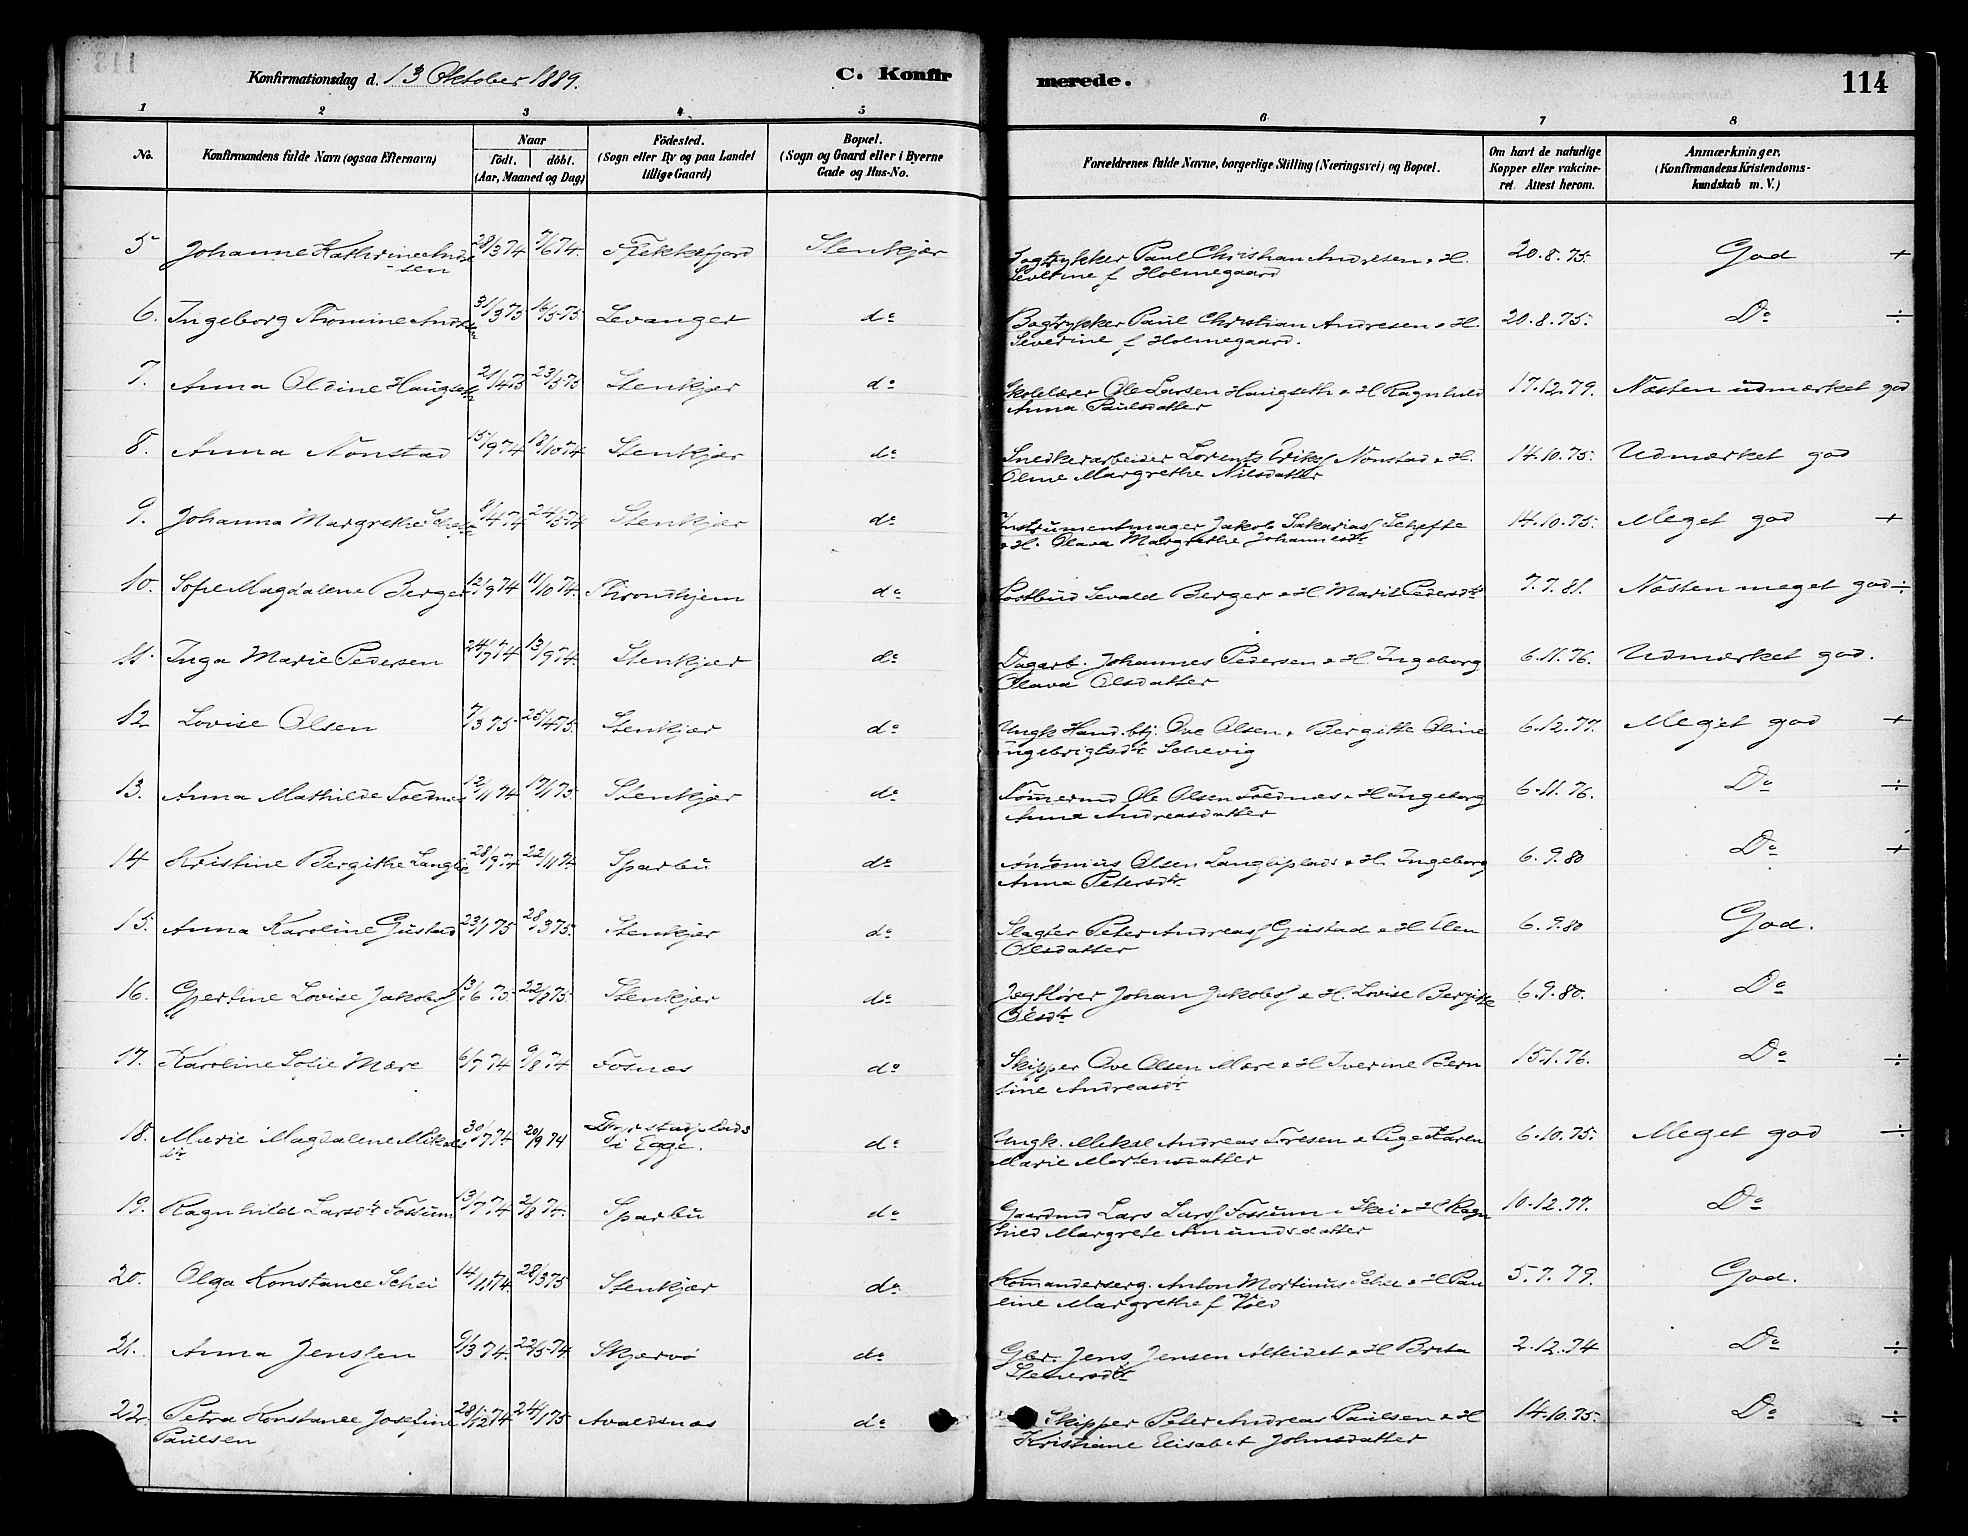 Konfirmationsdag d. 13 Oktober 1889.
C. Konfir
merede.
114
1 2 3 4 5 6 7 8
No.
Konfirmandens fulde Navn (ogsaa Efternavn)
Naar
födt. döbt.
(Aar, Maaned og Dag)
Födested.
(Sogn eller By og paa Landet
tillige Gaard)
Bopæl.
(Sogn og Gaard eller i Byerne
Gade og Hus-No.
Forældrenes fulde Navne, borgerlige Stilling (Næringsvei) og Bopæl.
Om havt de naturlige
Kopper eller vakcine-
ret. Attest herom.
Anmærkninger.
(Konfirmandens Kristendoms-
kundskab m. V.)
5 Johanne Kathrine Andre 28/3 74 7/6 74. Flekkefjord Stenkjær Bogtrykker Paul Christian Andresen & H. 20.8.75. God +
sen Severine f Holmegaard
6. Ingeborg Thomine Andre 31/3 75 16/5 75 Levanger do Bogtrykker Paul Christian Andresen & H. 20.8.75. Do ÷
Severine f Holmegaard.
7. Anna Oldine Haugseth 21/4 75 23/5 75 Stenkjer do Skolelærer Ole Larsen Haugseth & H Ragnhild 17.12.79. Næsten udmærket god
Anna Paulsdatter
8. Anna Nonstad 15/9 74 18/10 74 Stenkjær do Snedkerarbeider Lorents Eriks Nonstad & H. 14.10.75. Udmærket god
Oline Margrethe Nilsdatter
9. Johanna Margrethe Schefte 9/4 74 24/5 74 Stenkjær do Instrumentmager Jakob Sakarias Schefte 14.10.75. Meget god +
& H. Olava Margrethe Johannesdtr
10. Sofie Magdalene Berger 12/9 74 11/10 74. Throndhjem do Postbud Sevald Berger & H. Marit Pedersdtr 7.7.81. Næsten meget god ÷
11. Inga Marie Pedersen 24/7 74 13/9 74. Stenkjær do Dagarb. Johannes Pedersen & H. Ingeborg 6.11.76. Udmærket god.
Olava Olsdatter
12 Lovise Olsen 7/3 75 25/4 75. Stenkjær do Ungk Hand.btj. Ove Olsen & Bergitte Oline 6.12.77. Meget god +
Ingebrigtsdtr Schevig
13. Anna Mathilde Foldnæs 12/11 74 17/1 75. Stenkjær do Tømmermd Ole Olsen Foldnæs & H Ingeborg 6.11.76. Do ÷
Anna Andreasdatter
14 Kristine Bergithe Langli 28/9 74 22/11 74. Sparbu do Antonius Olsen Langliplads & H. Ingeborg 6.9.80 Do +
Anna Petersdtr
15. Anna Karoline Gustad 23/1 75 28/3 75. Stenkjær do Slagter Peter Andreas Gustad & H Elen 6.9.80 God.
Olsdatter
16. Gjertine Lovise Jakobs 13/6 75. 22/8 75. Stenkjær do Jægtfører Johan Jakobs & H. Lovise Bergitte 6.9.80. Do
Olsdtr
17. Karoline Sofie Mære 6/7 74 9/8 74 Fosnæs do Skipper Ove Olsen Mære & H Iverine Bern 15.1.76. Do ÷
tine Andreasdtr
18. Marie Magdalene Mikals 30/7 74. 20/9 74 plads do Ungk. Mikal Andreas Toresen & Pige Karen 6.10.75. Meget god ÷
dtr i Egge. Marie Mortensdatter
19. Ragnhild Larsdtr Fossum 13/7 74 2/8 74. Sparbu do Gaardmd Lars Lars Fossum Skei & H Ragn 10.12.77. Do
hild Margrete Amundsdatter
20. Olga Konstance Schei 14/11 74. 28/3 75 Stenkjær do Kommanderserg. Anton Mortinus Schei & H Pau 5.7.79. God.
line Margrethe f
21. Anna Jenssen 9/3 74. 22/5 74 Skjervö do Gbr. Jens Jensen Alteidet & H Brita 2.12.74 Do ÷
Steinersdtr
22. Petra Konstance Josefine 28/12 74 24/1 75 Avaldsnæs do Skipper Peter Andreas Paulsen & H 14.10.75. Do ÷
Paulsen Kristiane Elisabet Johnsdatter